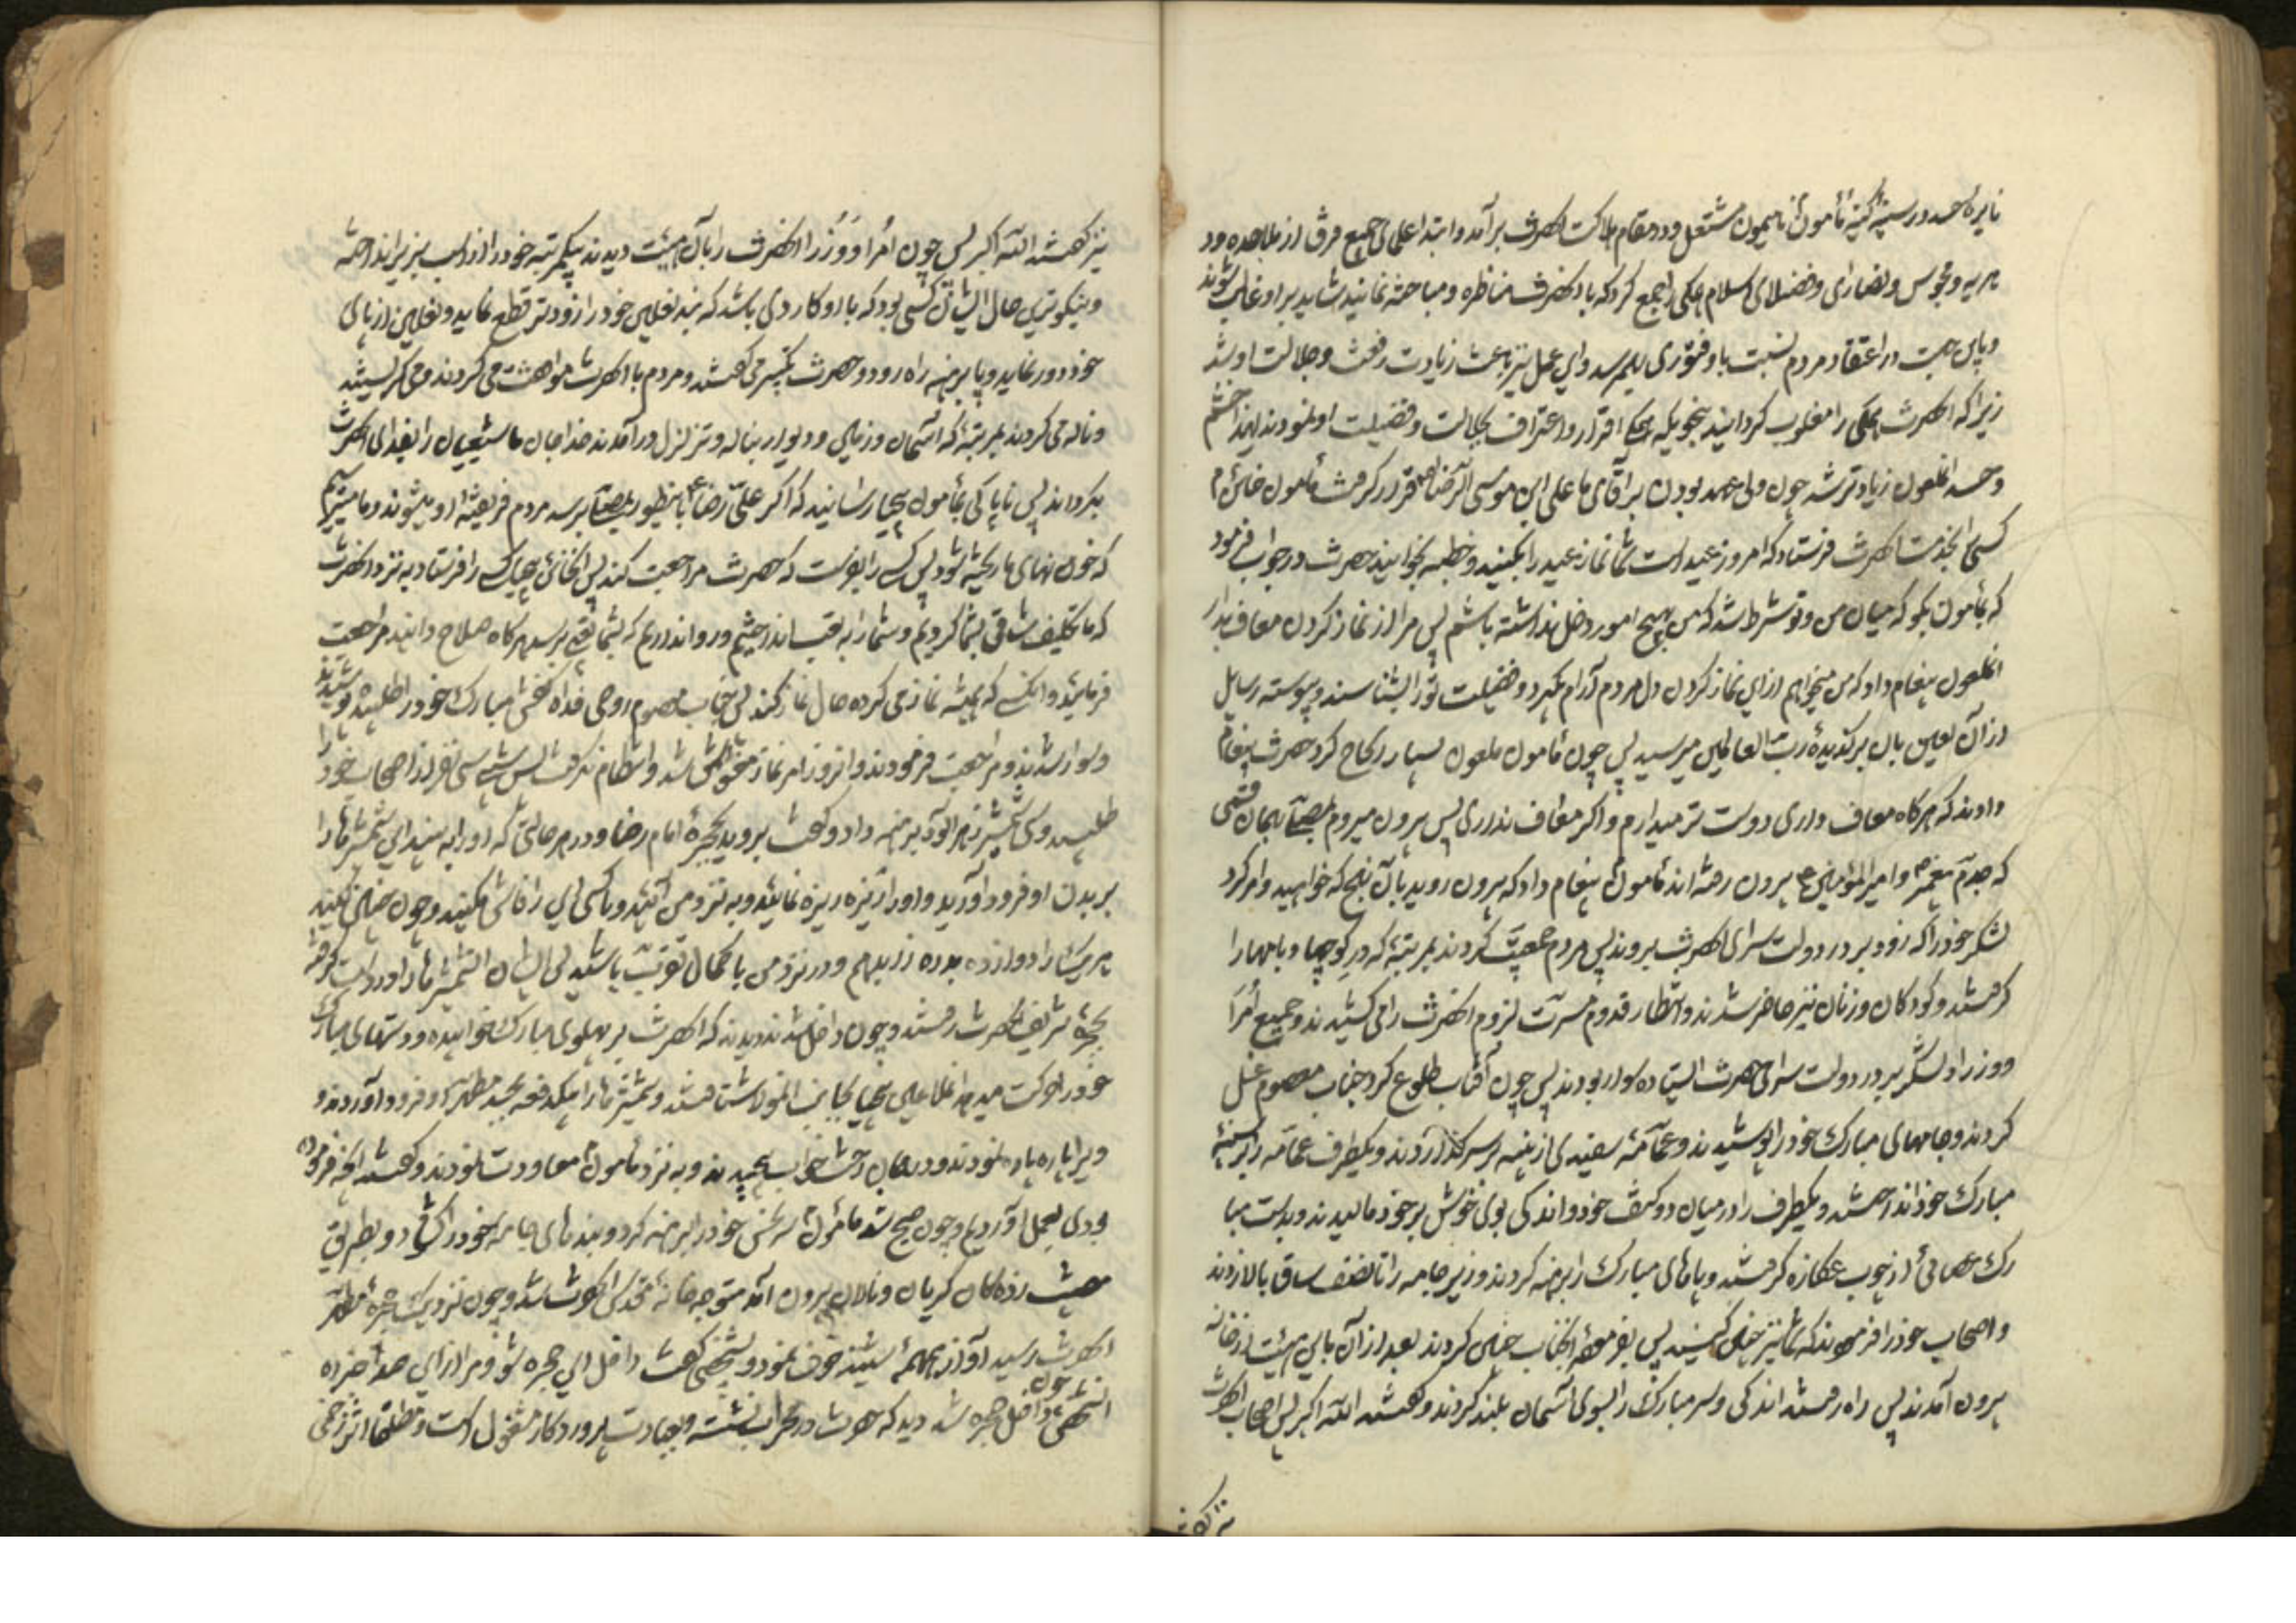 نایره حسد در سینه پرکینه مأمون نامیمون مشتعل و در مقام هلاکت انحضرت برآمد و ابتدا علمای جمیع فرق از ملاحده و د
هریه و مجوس و نصاری و فضلای اسلام همکی را جمع کرد که با انحضرت مناظره و مباحثه نمایند شاید بر او غالب شوند
و باین جهت در اعتقاد مردم نسبت باو فتوری بهم رسد و این عمل نیز باعث زیادت رفعت و جلالت او شد
زیرا که انحضرت همکی را مغلوب کردانید بنحویکه همکی اقرار و اعتراف بجلالت و فضیلت او نمودند لهذا خشم
و حسد انملعون زیادتر شد چون ولی عهد بودن بر اقای ما علی ابن موسی الرضا قرار کرفت مأمون خائن
کسی بخدمت انحضرت فرستاد که امروز عید است شما نماز عید را بکنید و خطبه بخوانید حضرت در جواب فرمود
که بمأمون بکو که میان من و تو شرط شد که من بهیچ امور دخل نداشته باشم پس مرا از نماز کردن معاف بدار
انملعون پیغام داد که من میخواهم از این نماز کردن دل مردم آرام بگیرد و فضیلت تو را بشناسند و پیوسته رسایل
از آن لعین بان برکزیده رب العالمین میرسید پس چون مأمون ملعون بسیار الحاح کرد حضرت پیغام
دادند که هرکاه معاف داری دوست تر میدارم و اکر معاف نداری پس بیرون میروم بهمان قسمی
که جدم پیغمبر و امیرالمؤمنین بیرون رفته اند مأمون پیغام داد که بیرون روید بآن نهج که خواهید و امر کرد
لشکر خود را که زود بر در دولت سرای انحضرت بروند پس مردم جمعیت کردند بمرتبهٔ که در کوچها و بامها را
کرفتند و کودکان و زنان نیز حاضر شدند و انتظار قدوم مسرت لزوم انحضرت را می کشیدند و جمیع أمرا
و وزرا و لشکر بر در دولت سرای حضرت ایستاده و سوار بودند پس چون آفتاب طلوع کرد جناب معصوم غسل
کردند و جامهای مبارک خود را پوشیدند و عمامهٔ سفیدی از پنبه بر سر کذاردند و یکطرف عمامه را بر سینهٔ
مبارک خود انداختند و یکطرف را در میان دو کتف خود و اندکی بوی خوش بر خود مالیدند و بدست مبا
رک عصائی از چوب عکازه کرفتند و پاهای مبارک را برهنه کردند و زیر جامه را تا نصف ساق بالا زدند
و اصحاب خود را فرمودند که شما نیز چنین کنید پس بفرموده انجناب چنین کردند بعد از آن باین هیئت از خانه
بیرون آمدند پس راه رفتند اندکی و سر مبارک را بسوی آسمان بلند کردند و کفتند الله اکبر پس اصحاب انحضرت
نیز کفتند
نیز کفتند الله اکبر پس چون أمرا و وزرا انحضرت را بآن هیئت دیدند بیکمرتبه خود را از اسب بزیر انداختند
و نیکوترین حال ایشان کسی بود که با او کاردی باشد که بند نعلین خود را زودتر قطع نماید و نعلین از پای
خود دور نماید و پا برهنه راه رود و حضرت تکبیر می کفتند و مردم با انحضرت موافقت می کردند و می کریستند
و ناله می کردند بمرتبهٔ که آسمان و زمین و دیوار بناله و تزلزل درآمدند خدا جان ما شیعیان را بفدای انحضرت
بکرداند پس ناپاکی بمأمون خبر رسانید که اکر علی رضا باینطور بمصلی برسد مردم فریفتهٔ او میشوند و ما میترسیم
که خون همای ما ریخته شود پس کسی را بفرست که حضرت مراجعت کند پس انخائن بیباک کسی را فرستاد به نزد انحضرت
که ما تکلیف شاقی بشما کردیم و شما را به تعب انداختیم و روا نداریم که بشما تعبی برسد هرکاه صلاح دانید مراجعت
فرمائید و انکسی که همیشه نماز می کرده حال نماز کند پس جناب معصوم روحی فداه کفش مبارک خود را طلبیده پوشیدند
و سوار شدند و مراجعت فرمودند و انروز امر نماز مختل شد و انتظام نکرفت پس شبی سی نفر از اصحاب خود را
طلبید و سی شمشیر زهرآلود برهنه داد و کفت بروید بحجرهٔ امام رضا و در هر حالتی که او را به بینید این شمشیرها را
بر بدن او فرود آورید و او را ریزه ریزه نمائید و به نزد من آئید و با کسی این راز فاش مکنید و چون چنین کنید
هر یک را دوازده بدره زر بدهم و در نزد من با کمال تقرب باشید پس ایشان انشمشیرها را در دست کرفته
بحجرهٔ شریف انحضرت رفتند و چون داخل شدند دیدند که انحضرت بر پهلوی مبارک خوابیده و دستهای مبارک
خود را حرکت میدهد انملاعین بجانب انمولا شتافتند و شمشیرها را بیکدفعه بجسد مطهر او فرود آوردند و
ویرا پاره پاره نمودند و در میان رختخواب پیچیدند و به نزد مأمون معاودت نمودند و کفتند انچه فرموده
بودی بعمل آوردیم و چون صبح شد مأمون سر نحس خود را برهنه کرد و بندهای جامه خود را کشاد و بطریق
مصیبت زده کان کریان و نالان بیرون آمد متوجه خانهٔ مقدس انحضرت شد و چون نزدیک حجرهٔ مطهر
انحضرت رسید آواز همهمهٔ شنید خوف نمود و بشخصی کفت داخل این حجره شو و مرا از این صدا خبر ده
انشخص چون داخل حجره شد دید که حضرت در محراب نشسته و بعبادت پروردکار مشغول است و مطلقا اثر زخمی